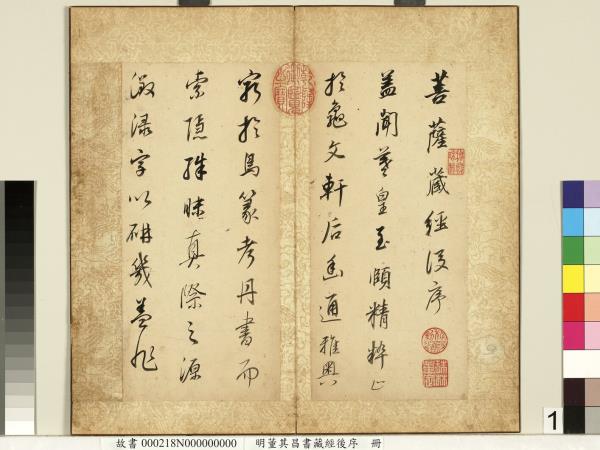 菩薩藏經後序
蓋聞羲皇至頤精粹止
於龜文軒后幽通雅奧
窮於鳥篆考丹書而
索隱殊昧真際之源
徵淥字以研幾蓋非
故書 000218N000000000 明董其昌書藏經後序 冊
1